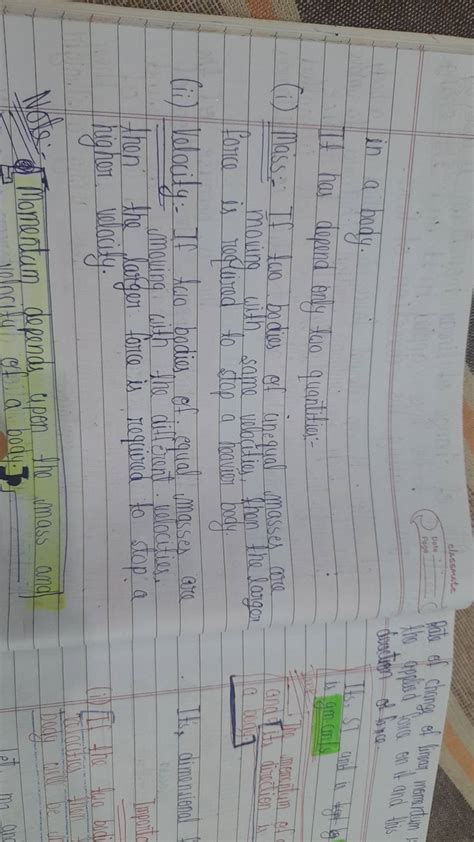 classmate
Date
Page
in a body.
It has depend only two quantities:-
(i) Mass:- If two bodies of unequal masses are
moving with same velocities, then the larger
force is required to stop a heavier body
(ii) Velocity:- If two bodies of equal masses are
moving with the different velocities,
then the larger force is required to stop a
higher velocity.
Note:-
Momentum depends upon the mass and
velocity of a body.
Rate of change of linear momentum
the applied force on it and this
direction of force
Its SI unit is
The momentum of
and its direction is
a body
Its, dimensional
(i) If the two bodi
velocities then
body will be
let m1 and